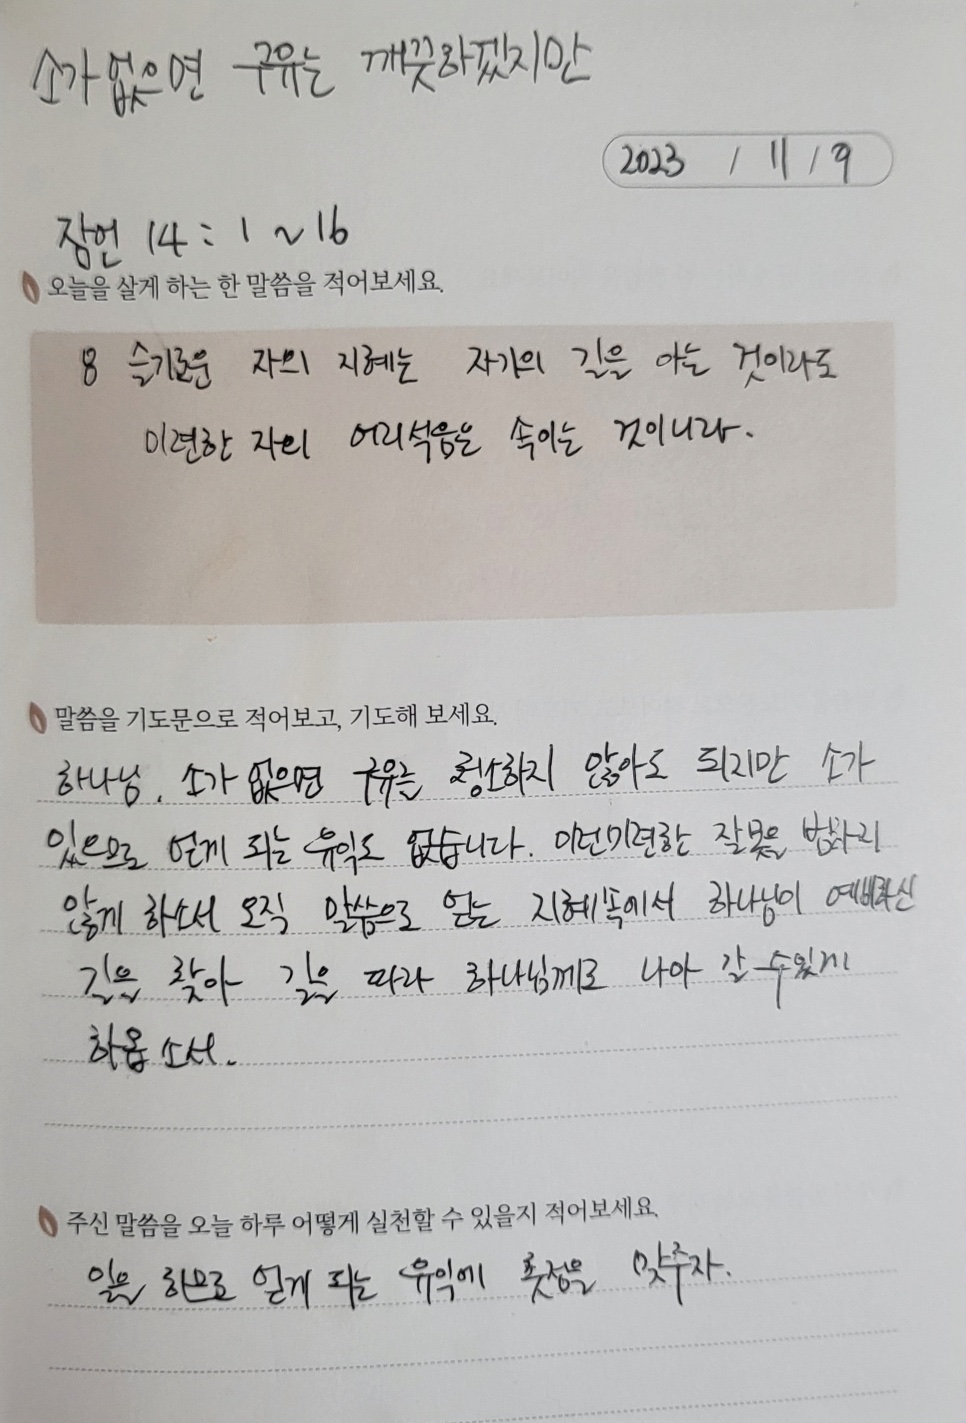 소가 없으면 구유는 깨끗하겠지만
2023 / 11 / 9
잠언 14 : 1 ~ 16
오늘을 살게 하는 한 말씀을 적어보세요.
8 슬기로운 자의 지혜는 자기의 길을 아는 것이라도
미련한 자의 어리석음은 속이는 것이니라.
말씀을 기도문으로 적어보고, 기도해 보세요.
하나님, 소가 없으면 구유를 청소하지 않아도 되지만 소가
있으므로 얻게 되는 유익도 없습니다. 이런 미련한 잘못을 범하지
않게 하소서 오직 말씀으로 얻는 지혜 속에서 하나님이 예비하신
길을 찾아 길을 따라 하나님께로 나아 갈 수 있게
하옵소서.
주신 말씀을 오늘 하루 어떻게 실천할 수 있을지 적어보세요.
일을 하므로 얻게 되는 유익에 촛점을 맞추자.